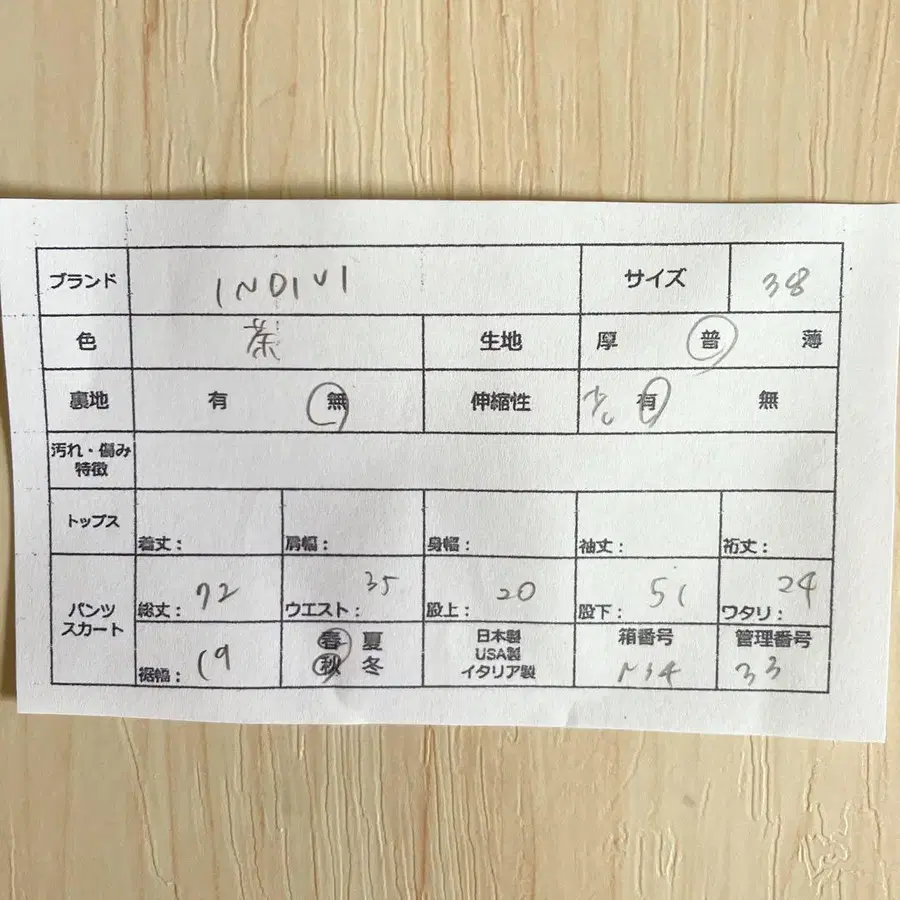 ブランド INDIVI サイズ 38
色 茶 生地 厚 普 薄
裏地 有 無 伸縮性 少し 有 無
汚れ・傷み
特徴
トップス 着丈: 肩幅: 身幅: 袖丈: 裄丈:
パンツ
スカート
総丈: 72 ウエスト: 35 股上: 20 股下: 51 ワタリ: 24
裾幅: 19 春 夏
秋 冬
日本製
USA製
イタリア製
箱番号
管理番号
33